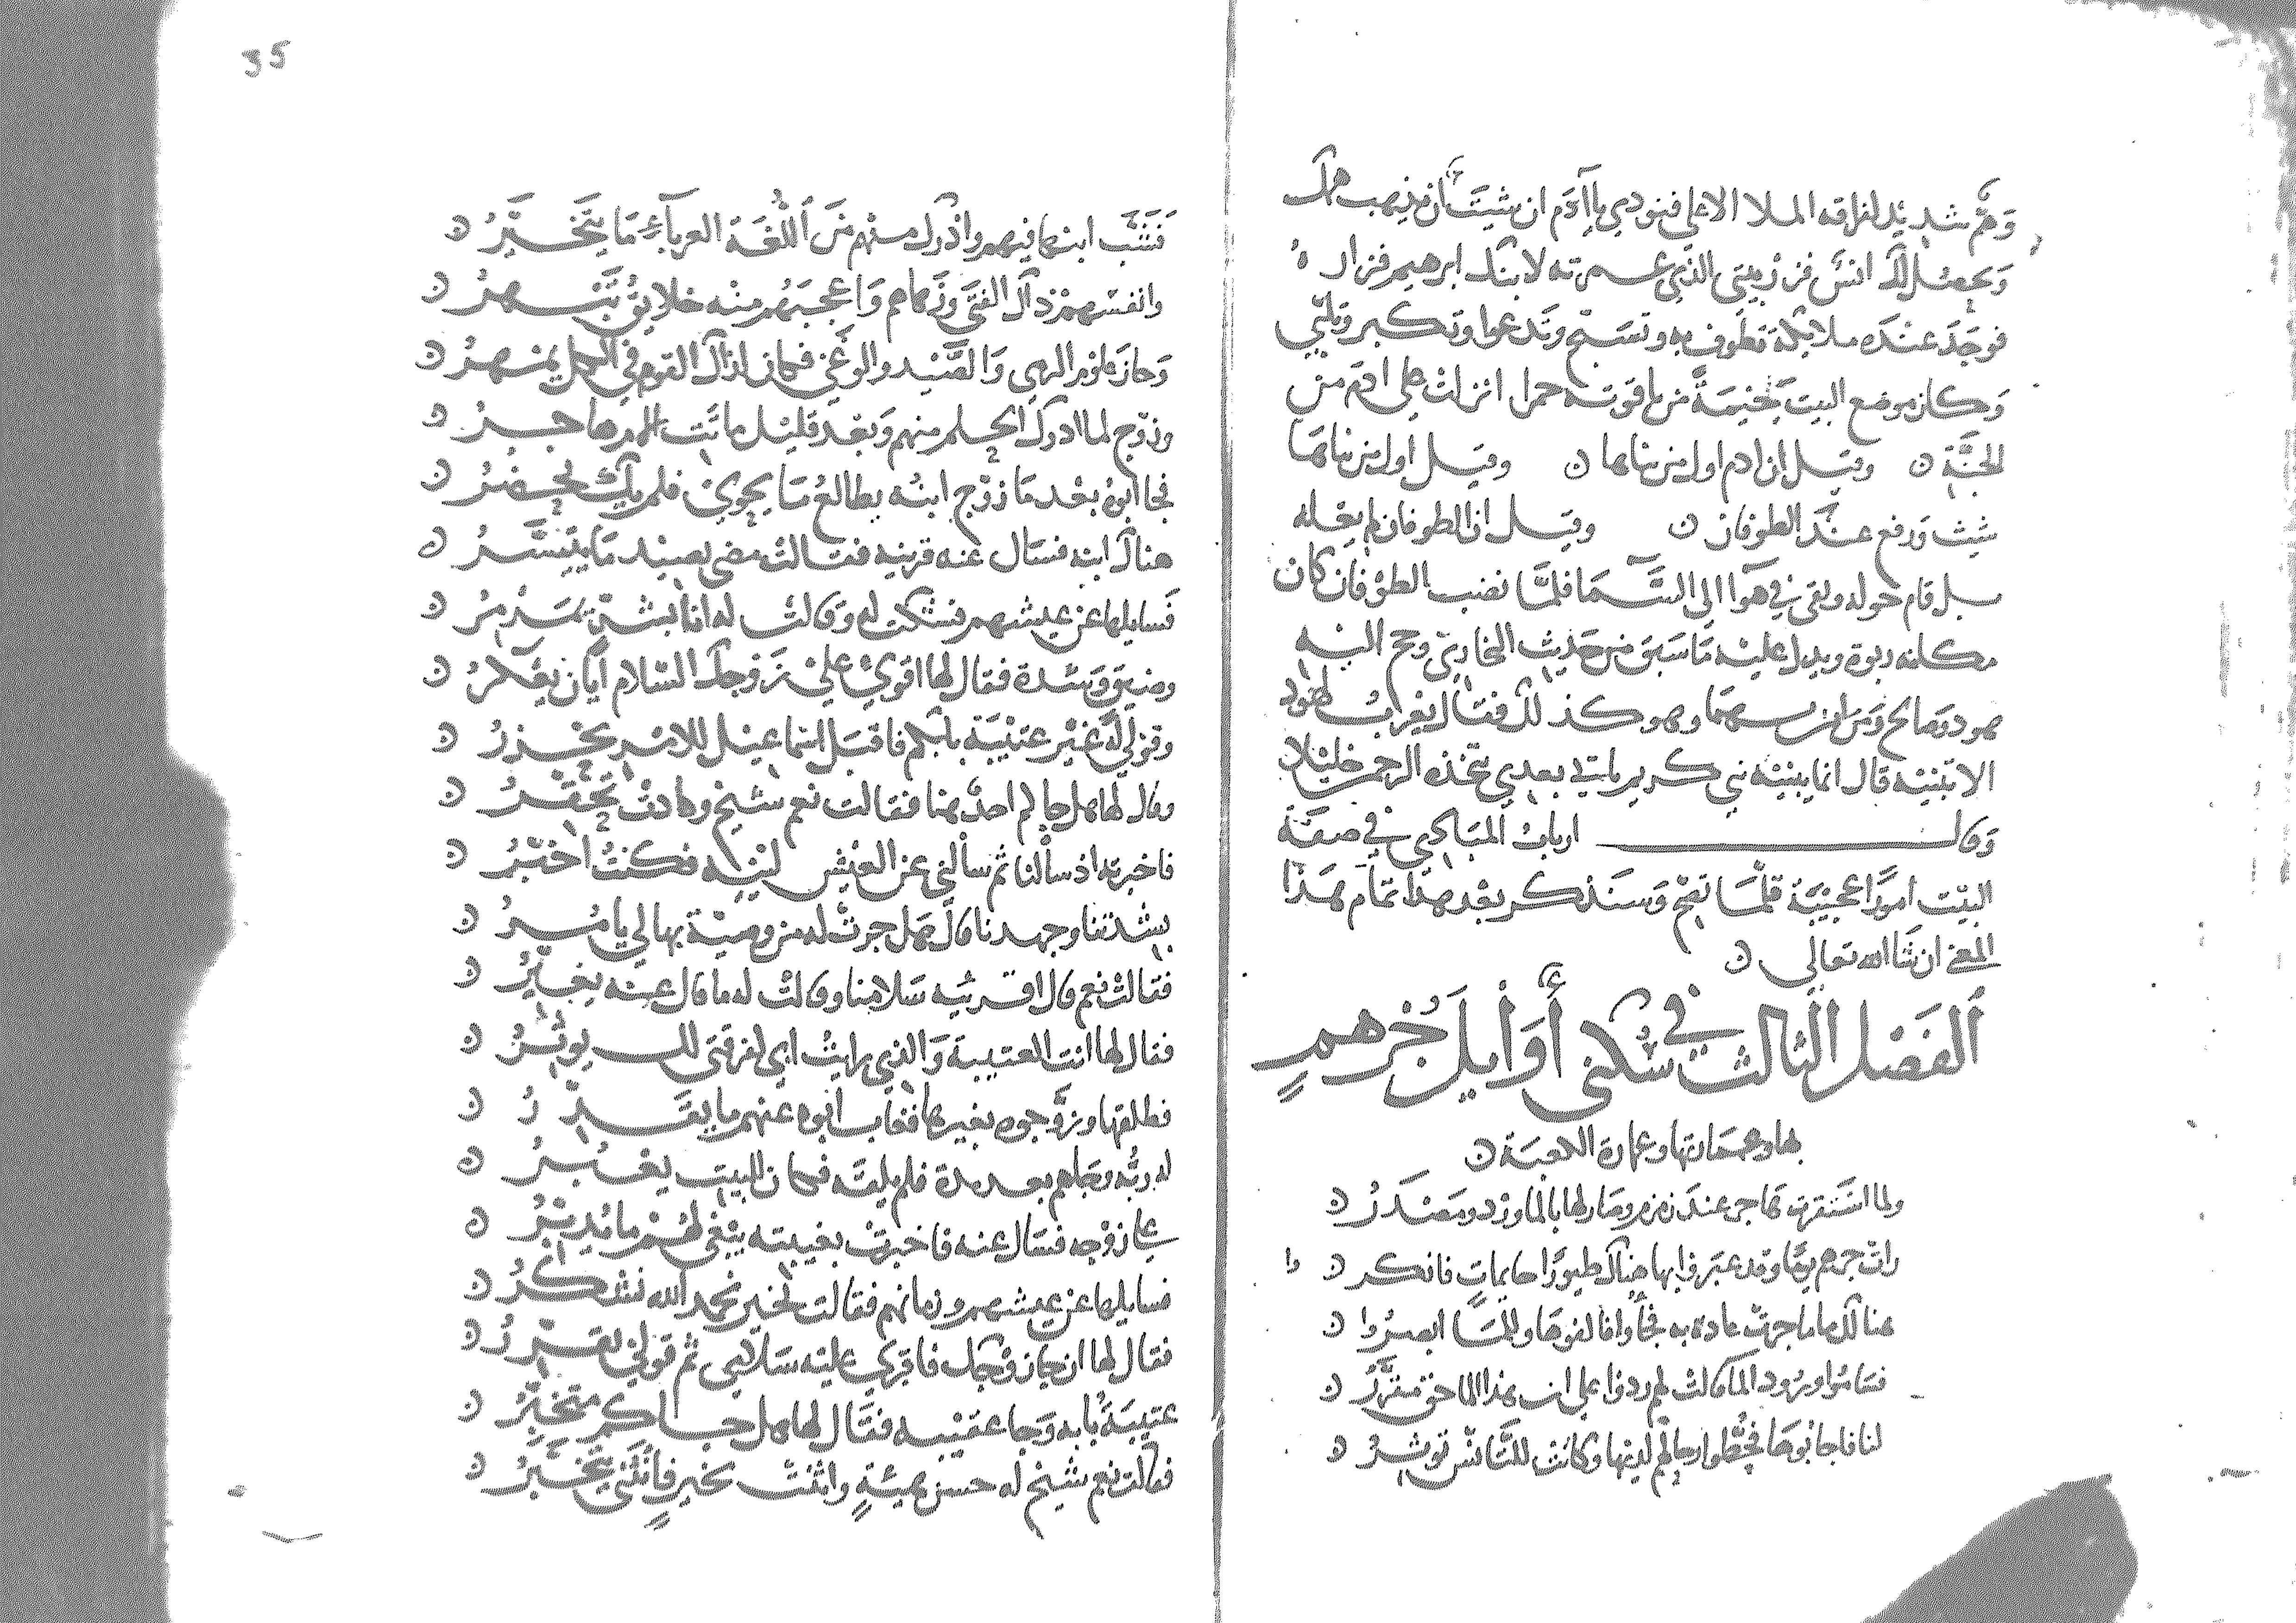 وَهَمّ شديد لفراقه الملا الاعلى فنودي يا آدم ان شيت ان يذهب همك
وَيحصل لك انس فزر بيتي الذي عمرته لابنك ابرهيم فزار
فوجَدَ عندَه ملايكة تطوف به وتسبح وتدعوا وتكبر وتلبي
وَكان موضع البيت خيمةً من ياقوته حمرا انزلت على ادم من
الجنّة ن وقيل ان ادم اول من بناها ن وقيل اول من بناها
شيث وَرفع عند الطوفان ن وقيل ان الطوفان لم يعله
بل قام حوله وبقي في هوا الى السّما فلمّا نضب الطوفان كان
مكانه ربوة ويدل عليه مَا سَبق من حَديث البخاري وحج اليه
هود وصالح ومن امن بهما وهو كذلك فقال يعرب لهود
الا تبنيه قال انما يبنيه نبي كريم ياتي بعدي يتخذه الرحمن خليلا
وَقال ارباب المبادي في صفة
البيت امورًا عجيبة قلّما تصح وَسنذكر بعد هذا تمام هَذا
المعنى ان شا الله تعالى ن
الفَصْل الثالث في سُكنى أَوَايل جُرهمٍ
بها وعمارتها وعمارة الكعبة ن
ولما استقرت هَاجر عند زمزم وصَار لها بالما ورْد ومَصْدَرُ ن
رات جرهم يومًا وقد عبروا بها هناك طيورًا حايماتٍ فانكروا ن
هنالك ما ما جرت عادة به فجاوا فالفوهَا وللما ابصرُوا ن
فسَامُوا ورُود الما قالت لهم ردوا على ان هذا الما حق مقرّرُ ن
لنا فاجابُوهَا فحطّوا رحالهم لديها وكانت للتانس توثرُ ن
35
فَشَبّ ابنها فيهم وادرك منهم مَن اللّغة العرباءِ مَا يتَخيّرُ ن
وانفسهم ذاك الفتَى وزهاهم وَاعجبَهُم منه خلايق تبهرُ ن
وَحاز علوم الرمي وَالصّيد والوغى فكان لذاك القوم في الكل يمهرُ ن
وزوّج لما ادرك الحلم منهم وَبعد قليل ماتَت الام هاجرُ ن
فجا ابوهُ بعد مَا زوّج ابنُه يطالعُ مَا يحوي فلم يك يحضرُ ن
هناك ابنه فسَال عنه قرينه فقالت مضى يصيد مَا يتيسّرُ ن
فَسايلها عن عيشهم فشكت له وقالت له انا بشرٍّ ندمرُ ن
وضيق وَشدة فقال لها اقري على زوجك السّلام ايان يعبرُ ن
وقولي له غيّر عتيبَة بابكم فاقبَل اسماعيل للامر يحزرُ ن
وقال لها هل جاكم احدٌ هنا فقالت نعم شيخ وكادت تحقّرُ ن
فاخبرته اذ سألنا ثم سألني عن العيش لينه فكنتُ اخبّرُ ن
بشدتنا وجهدنا قال هل جرتْ له من وصيّة بها لي يامرُ ن
فقالت نعم قال اقريه سَلامنا وقالت له ما قال عنه يغيّرُ ن
فقال لها انت العتيبة وَالذي رايت ابي لفرقتي لك يوثرُ ن
فطلقها وزوّجوه بغيرها فغاب ابوه عنهم ما يقدّرُ ن
له ربُّه وجاهم بعد مدة فلم يلقه فكان للبيت يعبرُ ن
على زوجه فسَال عنه فاخبرت بغيبته يبغي لهُم ما يُدبّرُ ن
فسايلها عن عيشهم وزمانهم فقالت بخير نحمد الله نشكرُ ن
فقال لها ان جا زوجك فاقري عليه سَلامي ثم قولي يقرّرُ ن
عتيبَة بابه وَجا عقيبه فقال لها هل جاكم متخبّرُ ن
فقالت نعم شيخ له حسن هيئةٍ واثنت بخير فأنثنى يتخبّرُ ن